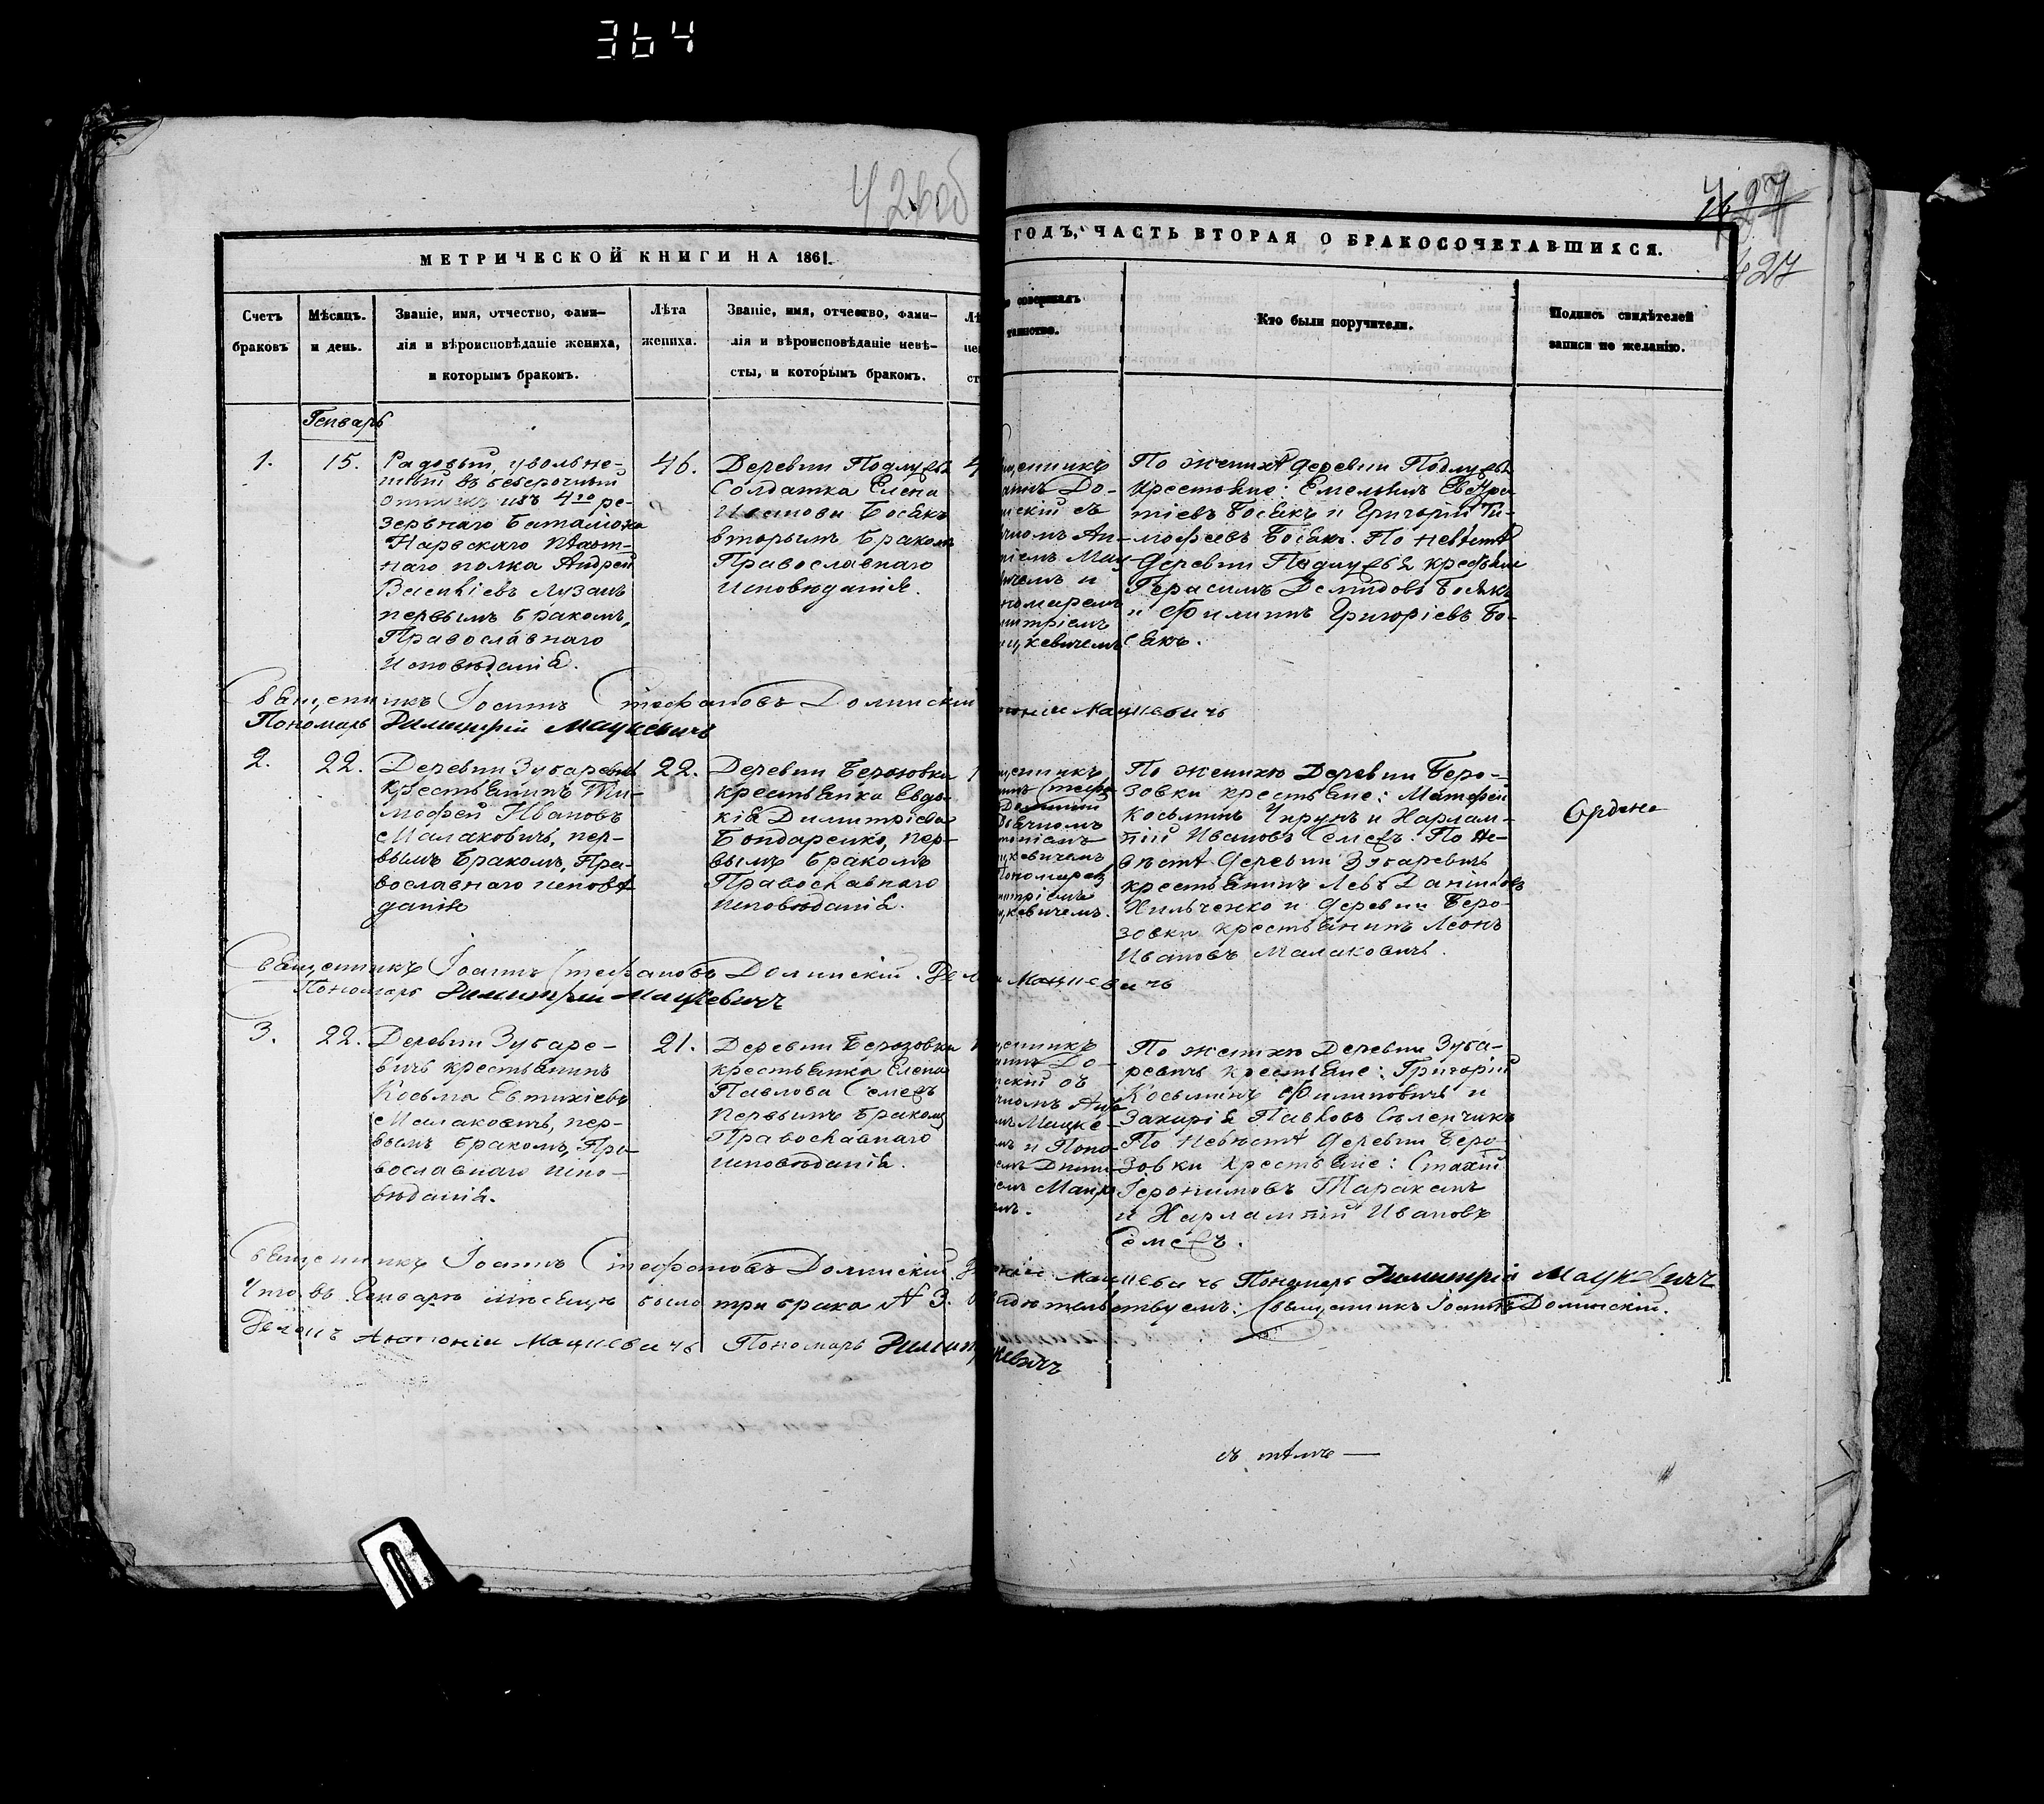 364
426об
427
427
МЕТРИЧЕСКОЙ КНИГИ НА 1861.
ГОДЪ, ЧАСТЬ ВТОРАЯ О БРАКОСОЧЕТАВШИХСЯ.
Счетъ
браковъ
Мѣсяцъ.
и день.
Званіе, имя, отчество, фами-
лія и вѣроисповѣданіе жениха,
и которымъ бракомъ.
Лѣта
жениха.
Званіе, имя, отчество, фами-
лія и вѣроисповѣданіе невѣ-
сты, и которымъ бракомъ.
совершалъ
таинство.
Кто были поручители.
Подпись свидѣтелей
записи по желанію.
Генварь
1.
15.
Рядовый, увольне-
ный въ безсрочный
отпускъ изъ 4го ре-
зервнаго баталіона
Нарвскаго пѣхот-
наго полка Андрей
Лузанъ
первымъ бракомъ,
Православнаго
исповѣданія.
46.
Деревни
Солдатка Елена
Иванова Босякъ
вторымъ бракомъ
Православнаго
исповѣданія.
щенникъ
До-
нскій съ
Ан-
ніемъ Мац
вичемъ и
номаремъ
митріемъ
цкевичемъ
По женихѣ деревни
крестьяне: Емельянъ
тіевъ Босякъ и Григорій Ти-
мофеевъ Босякъ. По невѣстѣ
деревни крестьяне
Герасимъ Демидовъ Босякъ
и Филиппъ Григоріевъ Бо-
сякъ.
Священникъ Іоаннъ Стефановъ Долинскій
Мацкевичъ
Пономарь Димитрій Мацкевичъ
2.
22.
Деревни Зубаревичъ
крестьянинъ Ти-
мофей Ивановъ
Малаковичъ, пер-
вымъ бракомъ, Пра-
вославнаго исповѣ-
данія
22.
Деревни Березовки
крестьянка Евдо-
кія Димитріева
Бондаренко, пер-
вымъ бракомъ
Православнаго
исповѣданія.
щенникъ
Долинскій
Дьячкомъ
тоніемъ
цкевичемъ
Пономарем
митріемъ
цкевичемъ.
По женихѣ Деревни Бере-
зовки крестьяне: Матфей
Косьминъ Чирунъ и Харлам-
пій Ивановъ Семецъ. По не-
вѣстѣ деревни Зубаревичъ
крестьянинъ Левъ Даниловъ
Хильченко и деревни Бере-
зовки крестьянинъ Леонъ
Ивановъ Малаковичъ.
Священникъ Іоаннъ Стефановъ Долинскій.
Мацкевичъ
Пономарь Димитрій Мацкевичъ
3.
22.
Деревни Зубаре-
вичъ крестьянинъ
Косьма Евтихіевъ
Малаковичъ, пер-
вымъ бракомъ, Пра-
вославнаго испо-
вѣданія.
21.
Деревни Березовки
крестьянка Елена
Павлова Семецъ
первымъ бракомъ
Православнаго
исповѣданія.
щенникъ
До-
нскій съ
Мацке-
и Поно-
Дими-
Мацке
По женихѣ Деревни Зуба-
ревичъ крестьяне: Григорій
Косьминъ Филиповичъ и
Захарія Павловъ
По невѣстѣ деревни Бере-
зовки крестьяне: Стахій
Іеронимовъ Тараканъ
и Харлампій Ивановъ
Семецъ.
Священникъ Іоаннъ Стефановъ Долинскій.
Мацкевичъ Пономарь Димитрій Мацкевичъ
Что въ Генварѣ мѣсяцѣ было три брака № 3.
свидѣтельствуемъ: Священникъ Іоаннъ Долинскій.
Антоній Мацкевичъ Пономарь Димит
кевичъ